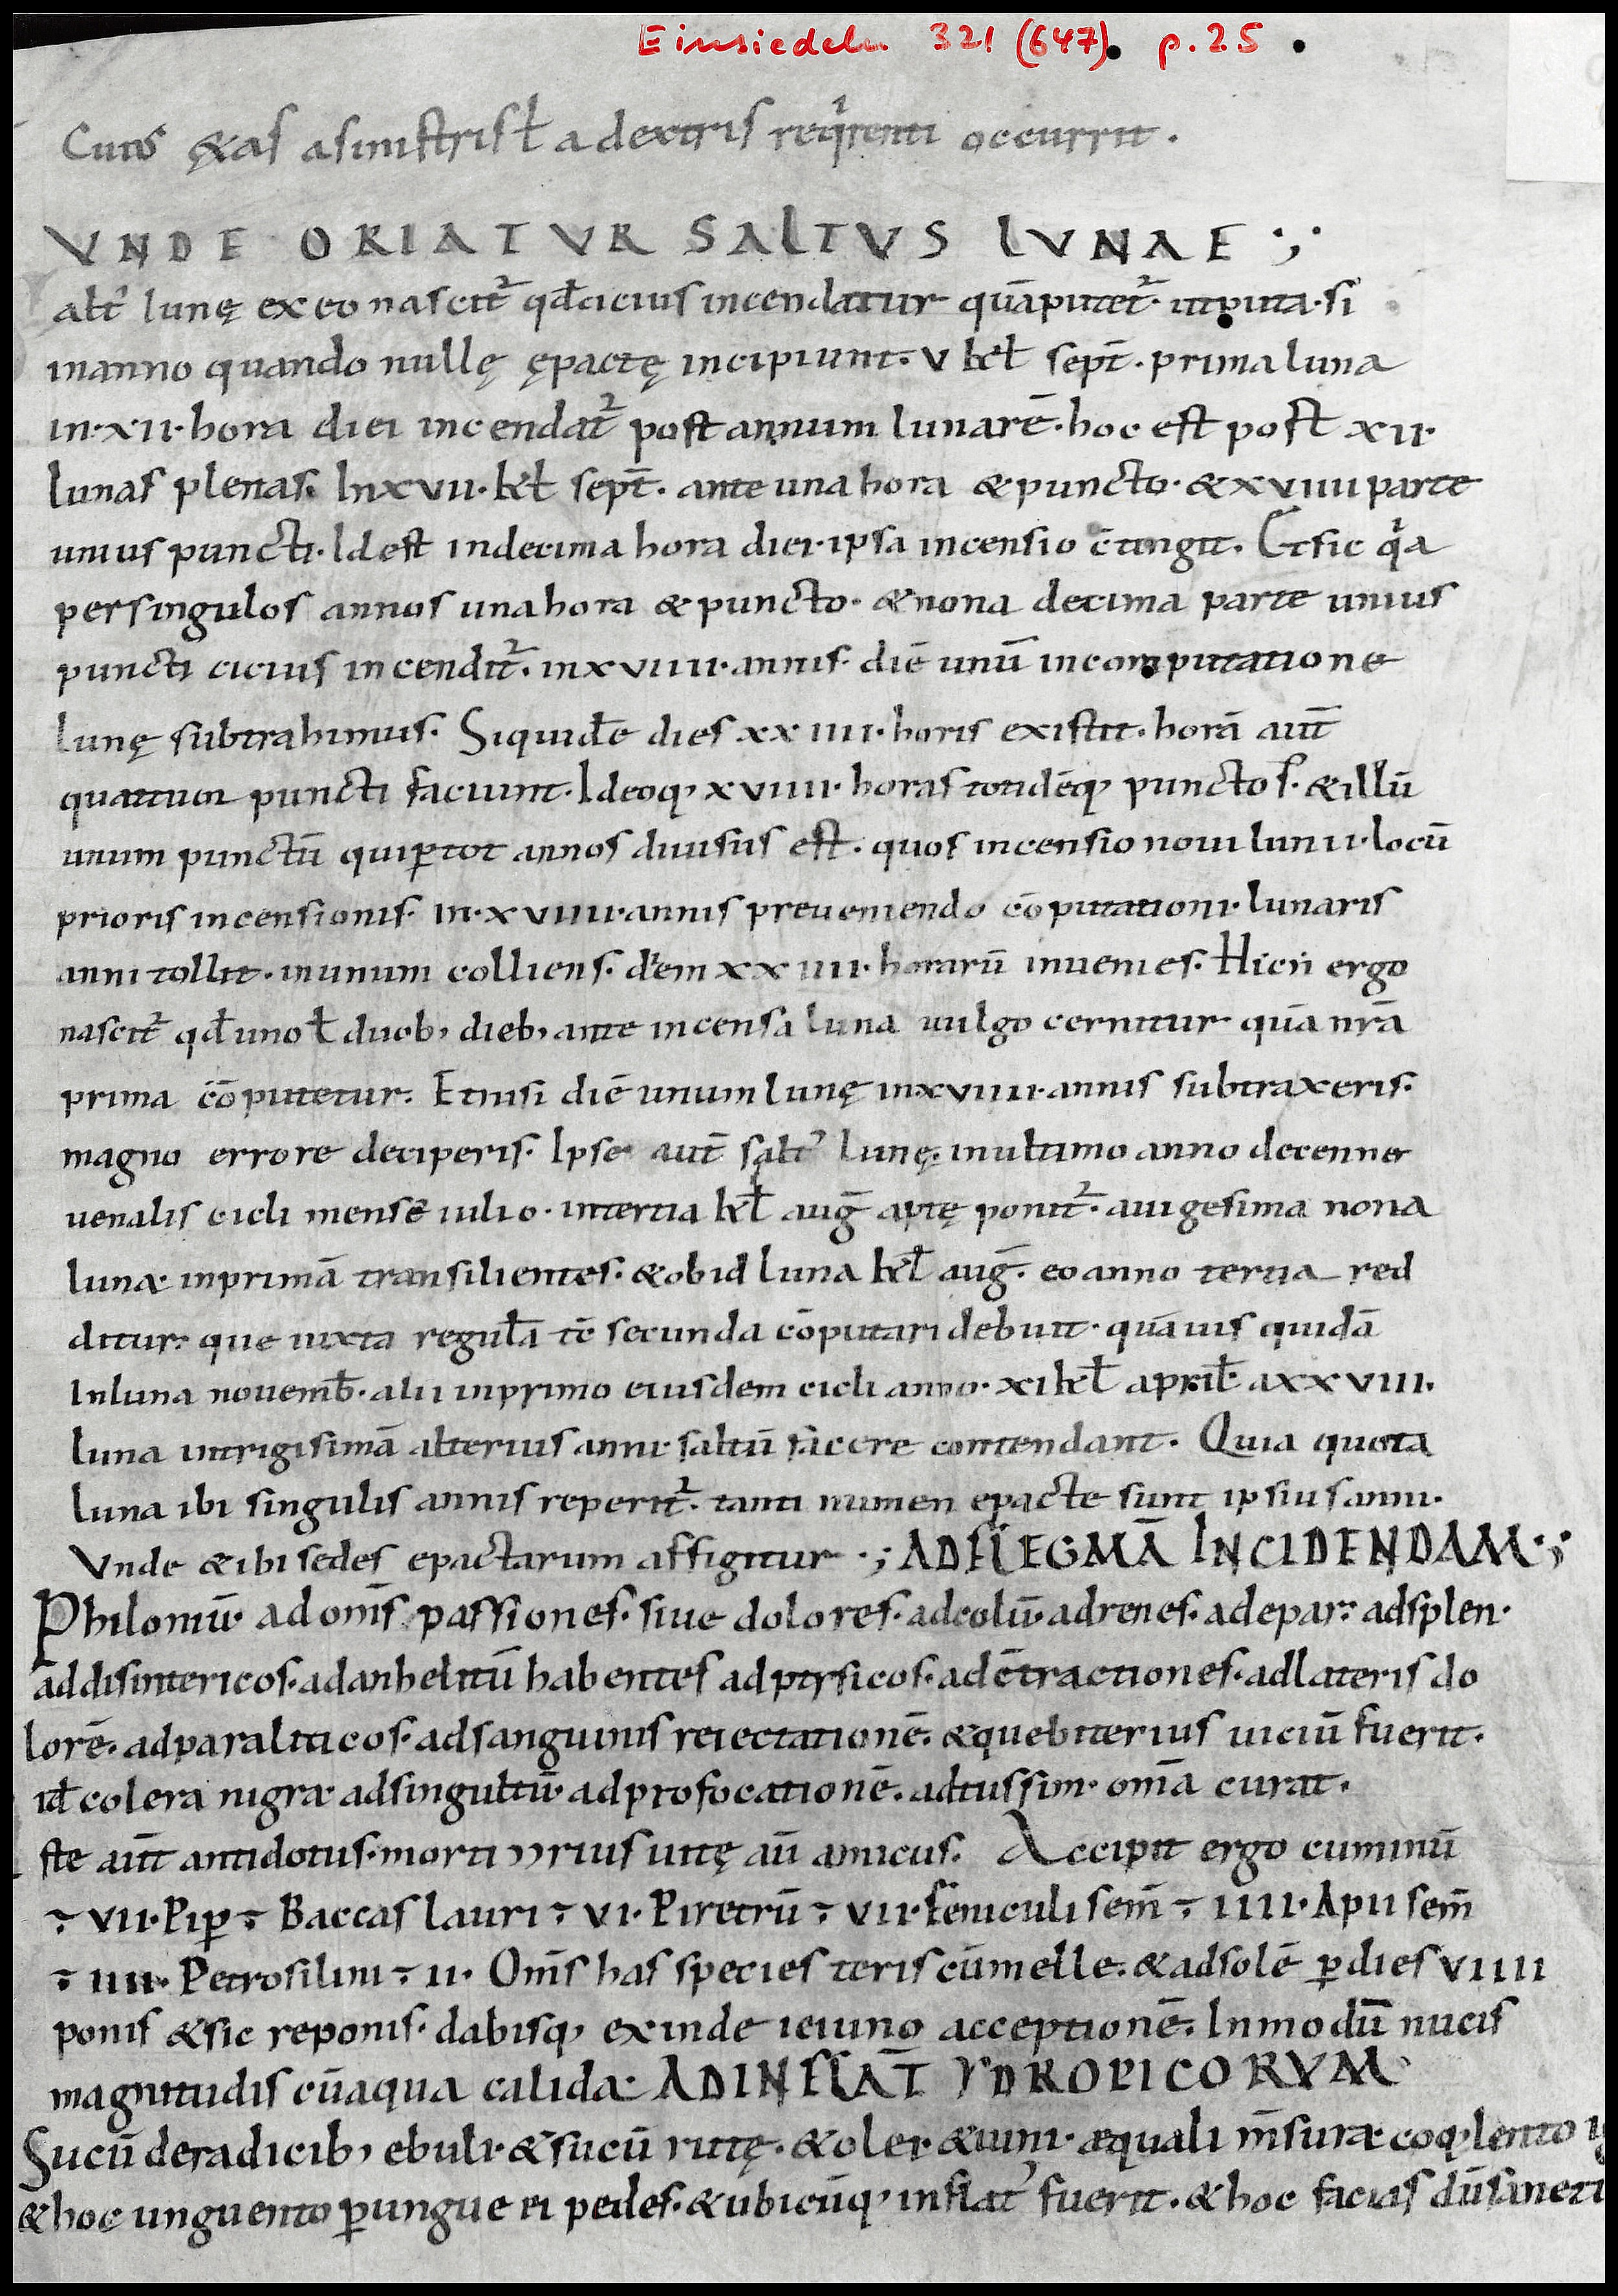 Einsiedeln 321 (647). p. 25.
Cuiꝰ ętas asinistris ł adextris reqͥrenti occurrit.
VNDE ORIATVR SALTVS LVNAE
alt᷒ lunę ex eo nascit᷑ qđ cicius incendatur quā putet᷑. utputa. si
inanno quando nullę ępactę incipiunt. v kƚ sept̄. prima luna
in. xii. hora diei incendat᷑ post annum lunarē. hoc est post xii.
lunas plenas. In xvii. kƚ sept̄. ante una hora & puncto. & xviiii parte
unius puncti. Id est indecima hora diei. ipsa incensio c̄tingit. Et sic qͥa
per singulos annos una hora & puncto. & nona decima parte unius
puncti cicius incendit᷑. in xviiii. annis. diē unū in computatione
lunę subtrahimus. Siquidē dies xxiiii. horis existit. horā aut̄
quattuor puncti faciunt. Ideoq; xviiii. horas totidēq; punctos. & illū
unum punctū qui ꝑtot annos diuisus est. quos incensio nouilunii. locū
prioris incensionis. in. xviiii. annis preueniendo cōputationi. lunaris
anni tollit. inunum colliens. diem xxiiii. horarū inuenies. Hicn̄ ergo
nascit᷑ qđ uno ł duob; dieb; ante incensa luna uulgo cernitur quā nr̄a
prima cōputetur. Et nisi diē unum lunę in xviiii. annis subtraxeris.
magno errore deciperis. Ipse aut̄ salt᷒ lunę. inultimo anno decenne
uenalis cicli mense iulio. intertia kƚ auḡ aptę ponit᷑. auigesima nona
luna inprimā transilientes. & obid luna kƚ auḡ. eo anno tertia red
ditur. que iuxta regulā tc̄ secunda cōputari debuit. quāuis quidā
Inluna nouemb̄. alii inprimo eiusdem cicli anno. xi kƚ april̄ axxviii.
luna intrigisimā alterius anni. saltū facere contendant. Quia quota
luna ibi singulis annis reperit᷑. tanti numen epacte sunt ipsius anni.
Vnde & ibi sedes epactarum affigitur .; ADFLEGMĀ INCIDENDAM.;
Philoniū. ad om̄s passiones. siue dolores. adcolū. adrenes. adepar. adsplen.
addisintericos. adanhelitū habentes adptisicos. adc̄tractiones. adlateris do
lorē. adparaliticos. adsanguinis reiectationē. & quebiterius uiciū fuerit.
iđ colera nigra. adsingultū. adprofocationē. adtussim. om̄a curat.
ste aut̄ antidotus. morti ↄtrius uitę aū amicus. Accipit ergo cuminū
÷ vii. Piꝑ ÷ Baccas lauri ÷ vi. Piretrū ÷ vii. Feniculi sem̄ ÷ iiii. Apii sem̄
÷ iiii. Petrosilini ÷ ii. Om̄s has species teris cūmelle. & adsolē ꝑdies viiii
ponis & sic reponis. dabisq; exinde ieiuno acceptionē. Inmodū nucis
magnitudis cūaqua calida. ADINFLAT̄ YDROPICORVM
Sucū deradicib; ebuli. & sucū rutę. & olei. & uini. ęquali m̄sura. coq; lento ig
& hoc unguento ꝑungue ei pedes. & ubicūq; inflat᷒ fuerit. & hoc facias dū saneti